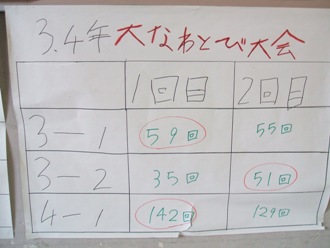 3.4年 大なわとび大会
1回目 2回目
3-1 59回 55回
3-2 35回 51回
4-1 142回 129回